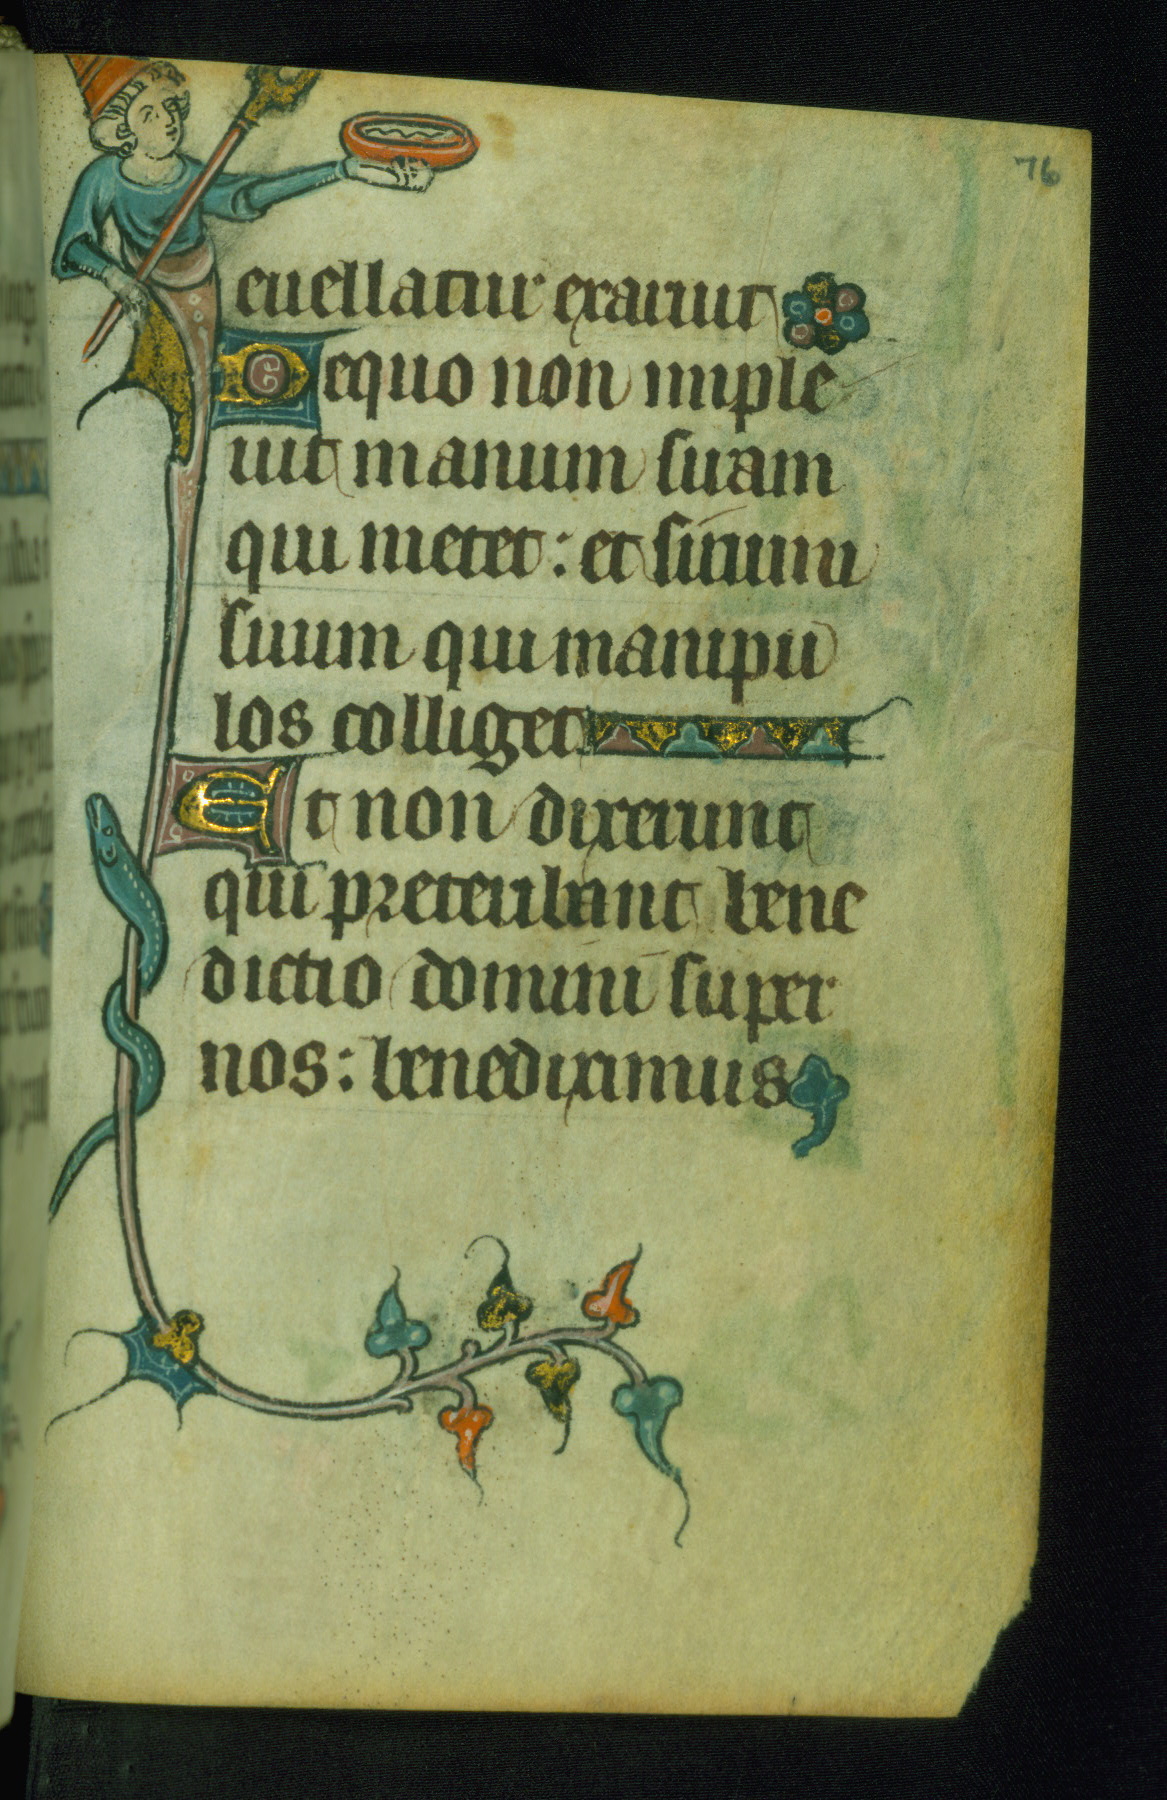 76
euellatur exaruit
Dequo non imple
uit manum suam
qui metet: et sinum
suum qui manipu
los colliget
Et non dixerunt
qui preteribant bene
dictio domini super
nos: benediximus